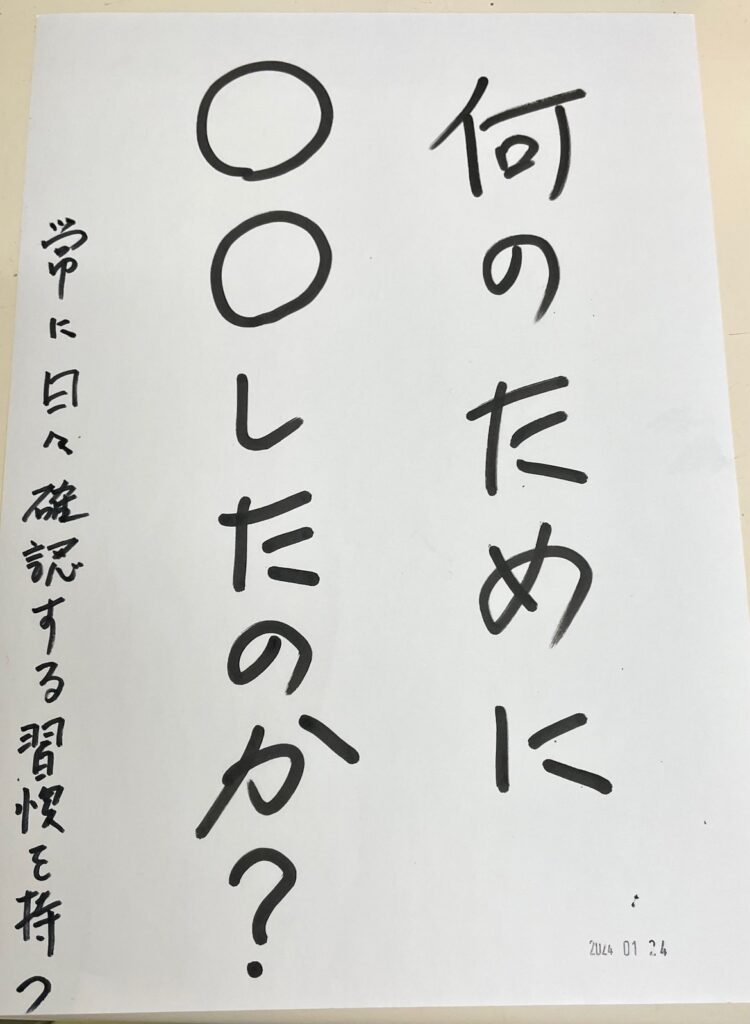 何のために
〇〇したのか？
常に日々確認する習慣を持つ
2024 01 24